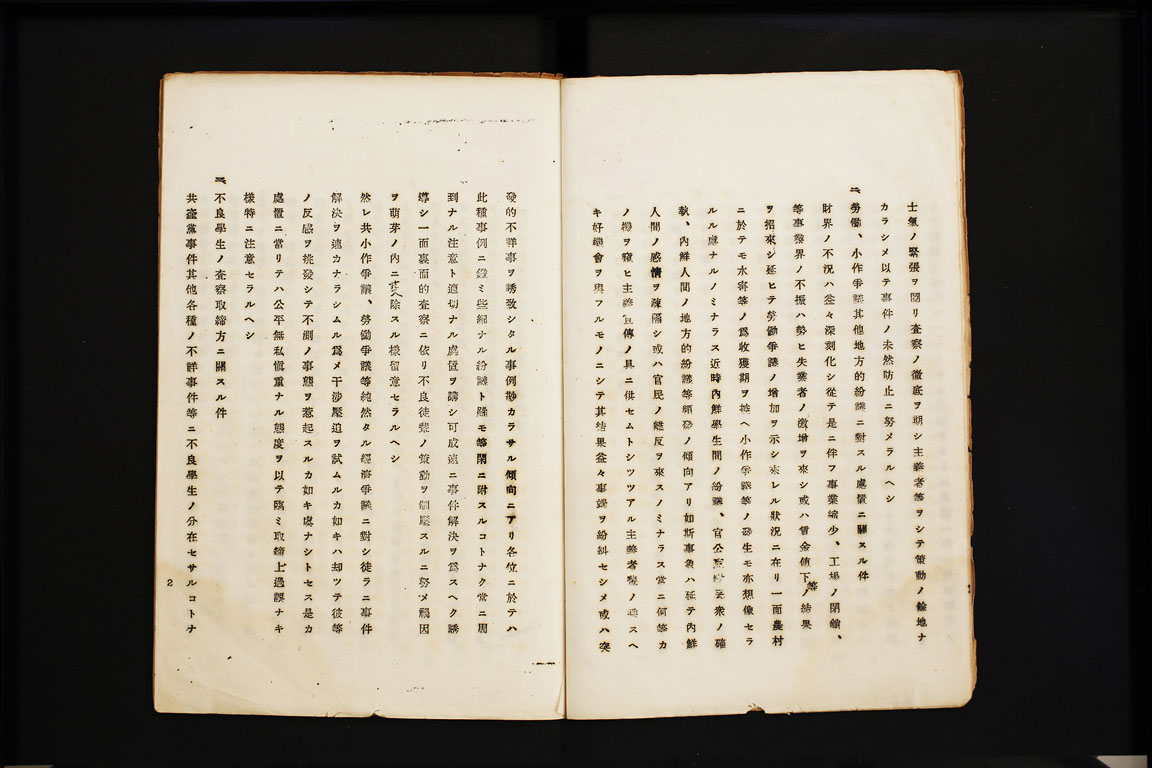 士氣ノ緊張ヲ圖リ査察ノ徹底ヲ期シ主義者等ヲシテ策動ノ餘地ナ
カラシメ以テ事件ノ未然防止ニ努メラルヘシ
二、勞働、小作爭議其他地方的紛議ニ對スル處置ニ關スル件
財界ノ不況ハ益々深刻化シ從テ是ニ伴フ事業縮少、工場ノ閉鎖、
等事業界ノ不振ハ勢ヒ失業者ノ激增ヲ來シ或ハ賃金値下等ノ結果
ヲ招來シ延ヒテ勞働爭議ノ增加ヲ示シ來レル狀況ニ在リ一面農村
ニ於テモ水害等ノ爲收獲期ヲ控ヘ小作爭議等ノ發生モ亦想像セラ
ルル處ナルノミナラス近時内鮮學生間ノ紛議、官公吏對民衆ノ確
執、内鮮人間ノ地方的紛議等頻發ノ傾向アリ如斯事象ハ延テ内鮮
人間ノ感情ヲ疎隔シ或ハ官民ノ離反ヲ來スノミナラス常ニ何等カ
ノ機ヲ窺ヒ主義宣傳ノ具ニ供セムトシツツアル主義者ノ乘スヘ
キ好機會ヲ與フルモノニシテ其結果益々事端ヲ紛糾セシメ或ハ突
發的不詳事ヲ誘致シタル事例尠カラサル傾向ニアリ各位ニ於テハ
此種事例ニ鑑ミ些細ナル紛議ト雖モ等閑ニ附スルコトナク常ニ周
到ナル注意ト適切ナル處置ヲ講シ可成速ニ事件解決ヲ爲スヘク誘
導シ一面裏面的査察ニ依リ不良徒輩ノ策動ヲ制壓スルニ努メ禍因
ヲ萌芽ノ内ニ除スル樣留意セラルヘシ
然レ共小作爭議、勞働爭議等純然タル經濟爭議ニ對シ徒ラニ事件
解決ヲ速カナラシムル爲メ干涉壓迫ヲ試ムルカ如キハ却ツテ彼等
ノ反感ヲ挑發シテ不測ノ事態ヲ惹起スルカ如キ處ナシトセス是カ
處置ニ當リテハ公平無私愼重ナル態度ヲ以テ臨ミ取締上過誤ナキ
樣特ニ注意セラルヘシ
三、不良學生ノ査察取締方ニ關スル件
共產黨事件其他各種ノ不詳事件等ニ不良學生ノ分在セサルコトナ
2